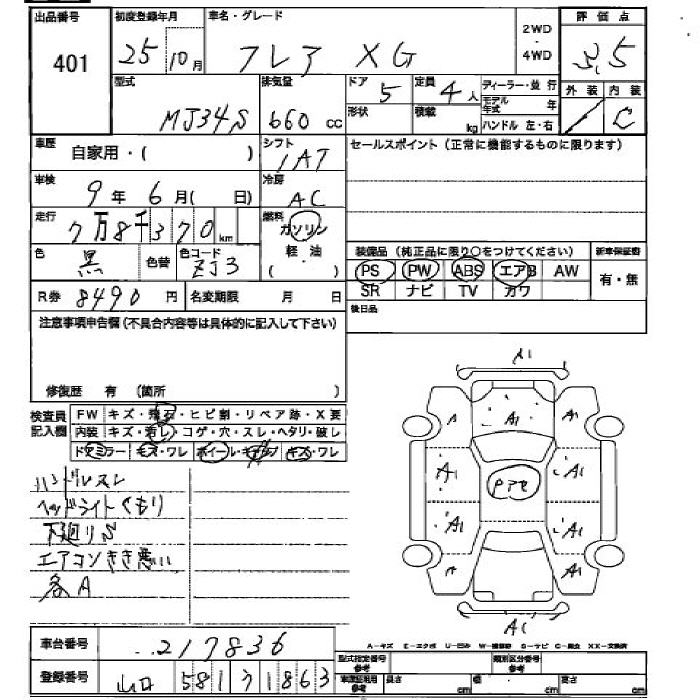 出品番号 初度登録年月 車名・グレード 2WD・4WD 評価点
401 25 10月 フレア XG 3.5
型式 排気量 ドア 定員 ディーラー・並行 外装 内装
MJ34S 660 cc 5 4人 モデル年式 年 C
形状 積載 kg ハンドル 左・右
車歴 自家用・( ) シフト IAT セールスポイント(正常に機能するものに限ります)
車検 9年 6月( 日) 冷房 AC
走行 7万8千370km 燃料 ガソリン
軽・油
( )
色 黒 色替 色コード ZJ3
装備品(純正品に限り○をつけてください) 新車保証書
PS PW ABS エアB AW 有・無
SR ナビ TV カワ
R券 8490円 名変期限 月 日
後日品
注意事項申告欄(不具合内容等は具体的に記入して下さい)
修復歴 有 (箇所 )
検査員記入欄 FW キズ・飛石・ヒビ割・リペア跡・X要
内装 キズ・汚れ・コゲ・穴・スレ・ヘタリ・破レ
ドアミラー キズ・ワレ ホイール・キャップ キズ・ワレ
ハンドルスレ
ヘッドライトくもり
下廻りS
エアコンきき悪い
各A
A1
A A1 A
A1 A1
A1 A1
A A
A1
車台番号 217836
A-キズ E-エクボ U-凹み W-補修跡 S-サビ C-腐食 XX-交換済
登録番号 山口 581 71863
型式指定番号 参考 類別区分番号 参考
車庫証明用 参考 長さ cm 幅 cm 高さ cm